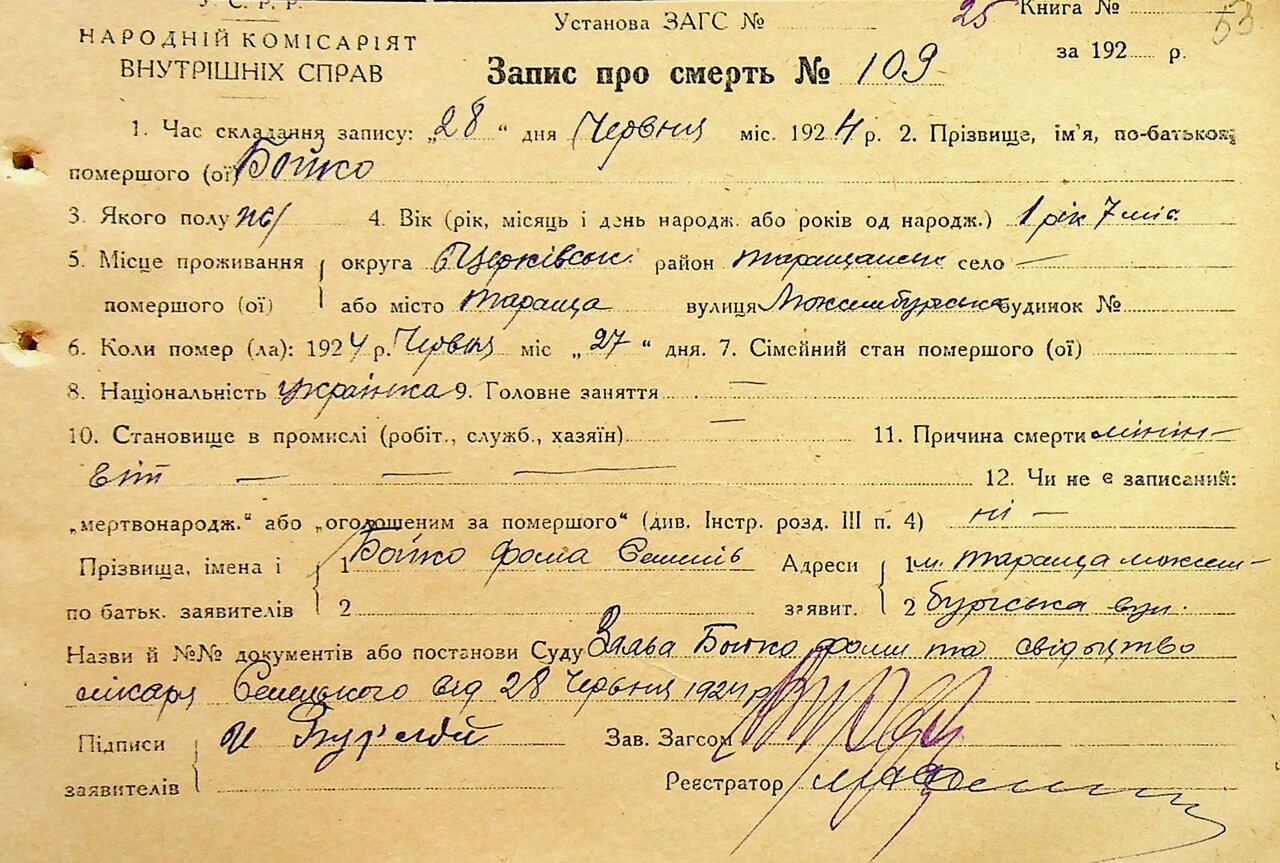 У. С. Р. Р.
НАРОДНІЙ КОМІСАРІЯТ
ВНУТРІШНІХ СПРАВ
Установа ЗАГС № 25 Книга № 53
за 192 р.
Запис про смерть № 109
1. Час складання запису: „28" дня Червня міс. 1924 р. 2. Прізвище, ім'я, по-батькові
помершого (ої) Бойко
3. Якого полу ж/ 4. Вік (рік, місяць і день народж. або років од народж.) 1 рік 7 міс.
5. Місце проживання округа район Таращанськ село —
помершого (ої) або місто Тараща вулиця будинок №
6. Коли помер (ла): 1924 р. Червня міс „27" дня. 7. Сімейний стан помершого (ої)
8. Національність українка 9. Головне заняття —
10. Становище в промислі (робіт., служб., хазяїн) — 11. Причина смерти мінін-
гіт — — — 12. Чи не є записаний:
„мертвонародж." або „оголошеним за помершого" (див. Інстр. розд. III п. 4) ні —
Прізвища, імена і 1 Бойко Фома Адреси 1 м. Тараща
по батьк. заявителів 2 заявит. 2 бургська вул.
Назви й №№ документів або постанови Суду Заява Бойко Фоми та свідоцтво
лікаря від 28 Червня 1924 р.
Підписи
заявителів
Зав. Загсом
Реєстратор